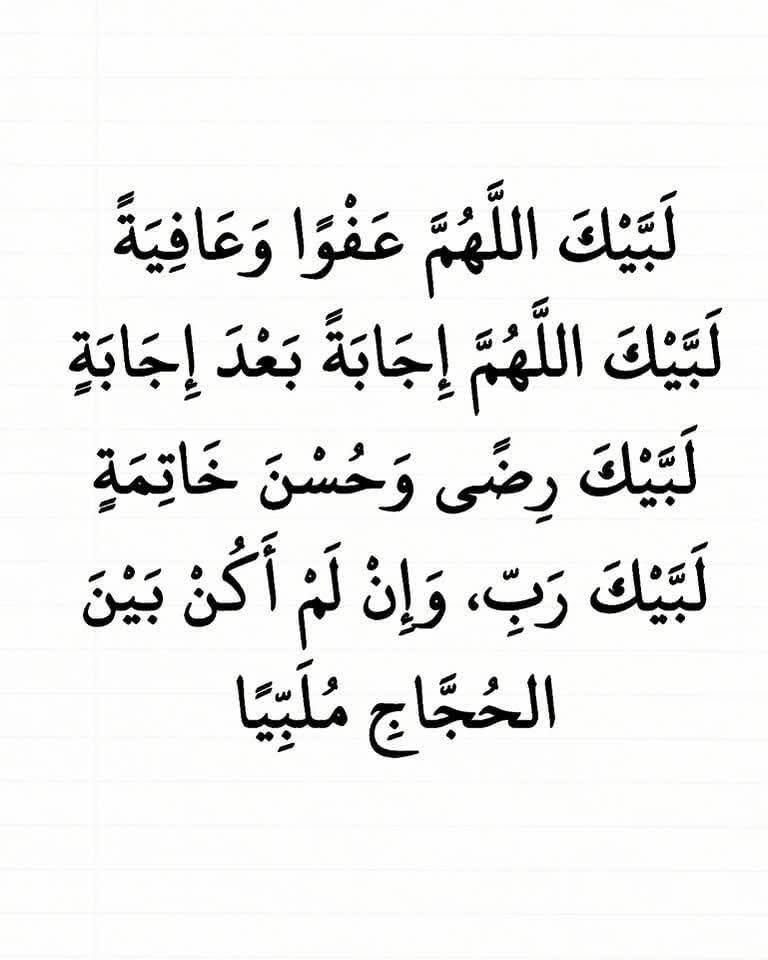 لَبَّيْكَ اللَّهُمَّ عَفْوًا وَعَافِيَةً
لَبَّيْكَ اللَّهُمَّ إِجَابَةً بَعْدَ إِجَابَةٍ
لَبَّيْكَ رِضًى وَحُسْنَ خَاتِمَةٍ
لَبَّيْكَ رَبِّ، وَإِنْ لَمْ أَكُنْ بَيْنَ
الحُجَّاجِ مُلَبِّيًا